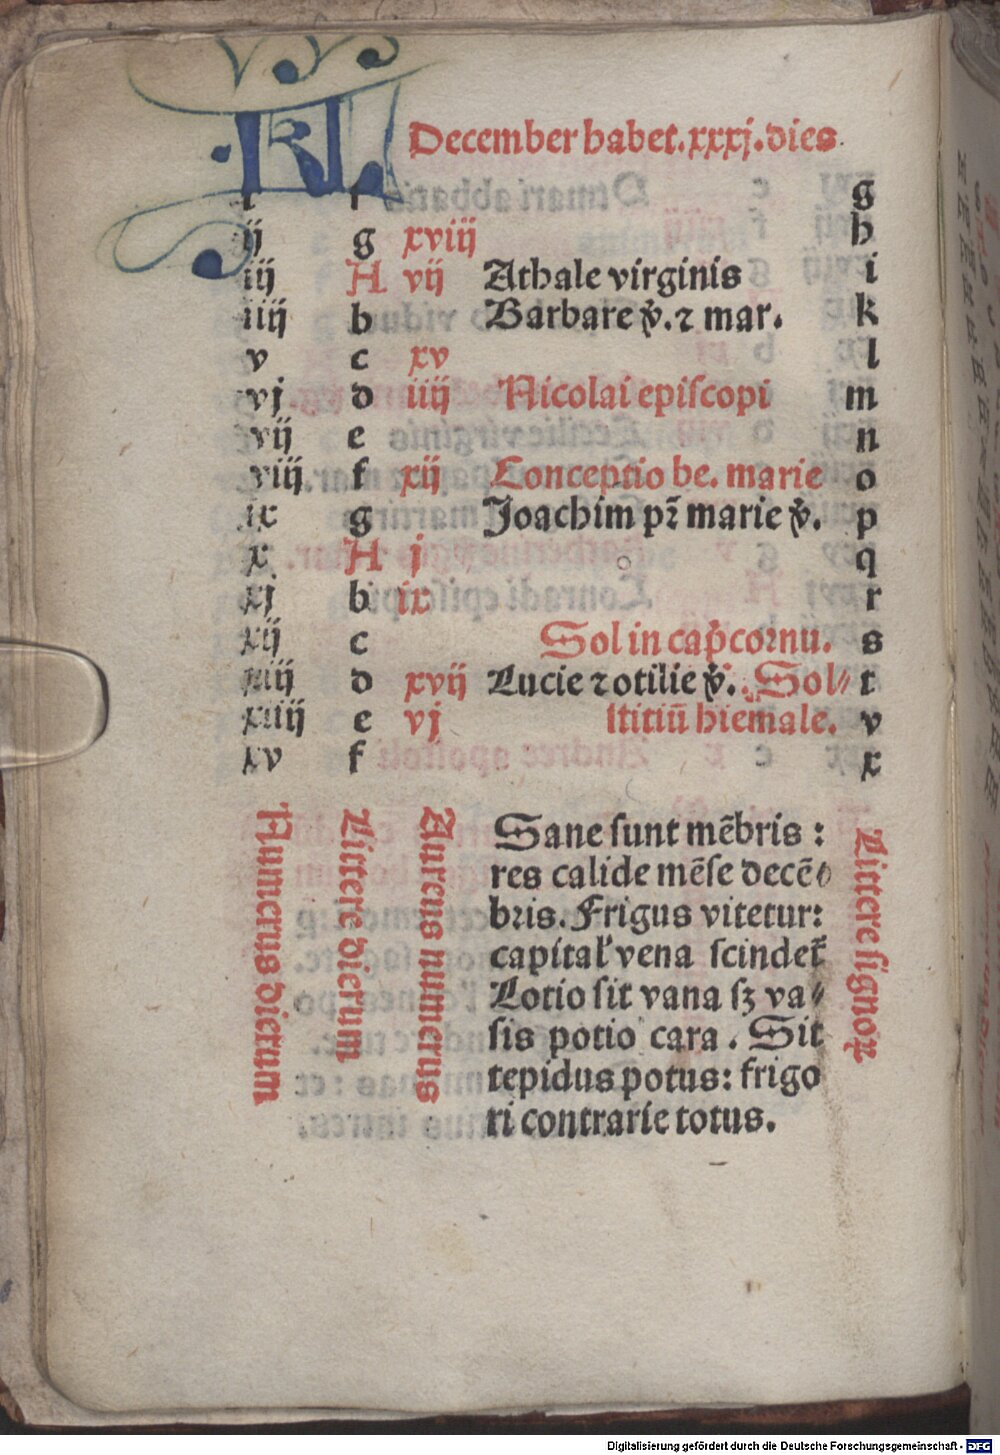 KL December habet.xxxj.dies
i f g
ij g xviij h
iij A vij Athale virginis i
iiij b Barbare v̓.⁊ mar. k
v c xv l
vj d iiij Nicolai epiſcopi m
vij e n
viij f xij Conceptio be. marie o
ix g Joachim pr̄ marie v̓. p
x A j q
xj b ix r
xij c Sol in cap̓cornu. s
xiij d xvij Lucie ⁊ otilie v̓. Sol⸗ t
xiiij e vj ſtitiū hiemale. v
xv f x
Numerus dictum
Littere dierum
Aureus numerus
Sane ſunt mēbris :
res calide mēſe decē
bris. Frigus vitetur:
capital' vena ſcindet᷑
Lotio ſit vana ſꝫ va⸗
ſis potio cara . Sit
tepidus potus: frigo
ri contrarie totus.
Littere ſignoꝝ
Digitalisierung gefördert durch die Deutsche Forschungsgemeinschaft - DFG